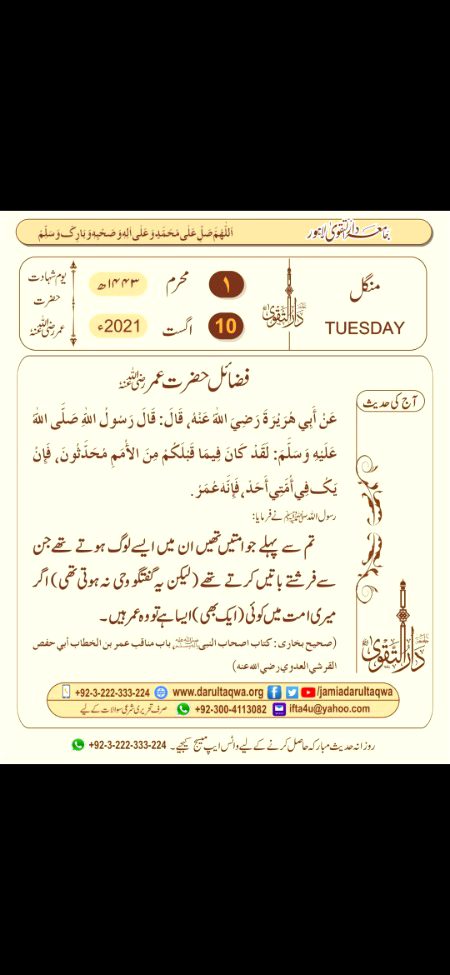 اَللّٰهُمَّ صَلِّ عَلٰى مُحَمَّدٍ وَّعَلٰى اٰلِهٖ وَصَحْبِهٖ وَبَارِكْ وَسَلِّمْ
جامعہ دارالتقویٰ لاہور
منگل
TUESDAY
دارالتقویٰ
۱ محرم ۱۴۴۳ھ
10 اگست 2021ء
یوم شہادت
حضرت
عمر رضی اللہ عنہ
آج کی حدیث
فضائل حضرت عمر رضی اللہ عنہ
عَنْ أَبِي هُرَيْرَةَ رَضِيَ اللهُ عَنْهُ، قَالَ: قَالَ رَسُولُ اللهِ صَلَّى اللهُ
عَلَيْهِ وَسَلَّمَ: لَقَدْ كَانَ فِيمَا قَبْلَكُمْ مِنَ الأُمَمِ مُحَدَّثُونَ، فَإِنْ
يَكُ فِي أُمَّتِي أَحَدٌ، فَإِنَّهُ عُمَرُ.
رسول اللہ ﷺ نے فرمایا:
تم سے پہلے جو امتیں تھیں ان میں ایسے لوگ ہوتے تھے جن
سے فرشتے باتیں کرتے تھے (لیکن یہ گفتگو وحی نہ ہوتی تھی) اگر
میری امت میں کوئی (ایک بھی) ایسا ہے تو وہ عمر ہیں۔
(صحیح بخاری: کتاب اصحاب النبی ﷺ باب مناقب عمر بن الخطاب أبي حفص
القرشي العدوي رضي الله عنه)
دارالتقویٰ
+92-3-222-333-224 www.darultaqwa.org /jamiadarultaqwa
صرف تحریری شرعی سوالات کے لیے +92-300-4113082 ifta4u@yahoo.com
روزانہ حدیث مبارکہ حاصل کرنے کے لیے واٹس ایپ میسج کیجیے۔ +92-3-222-333-224